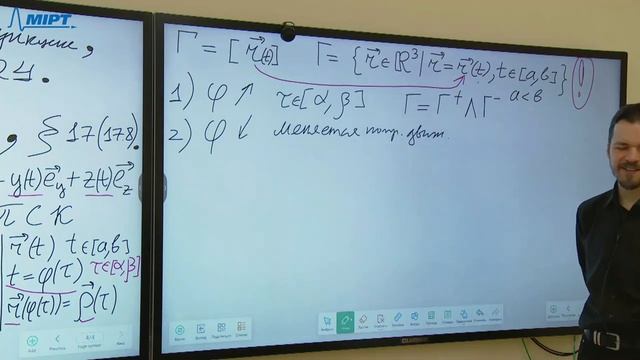 MIPT
рикцие,
24.
, § 17(178).
y(t)e⃗_y + z(t)e⃗_z
ПСК
r⃗(t) t∈[a,b]
t=φ(τ) τ∈[α,β]
r⃗(φ(t))=ρ⃗(τ)
Γ=[r⃗(t)] Γ={r⃗∈ℝ³|r⃗=r⃗(t), t∈[a,b]} !
1) φ↗ τ∈[α,β] Γ=Γ⁺∧Γ⁻ a<b
2) φ↙ меняется напр. движ.